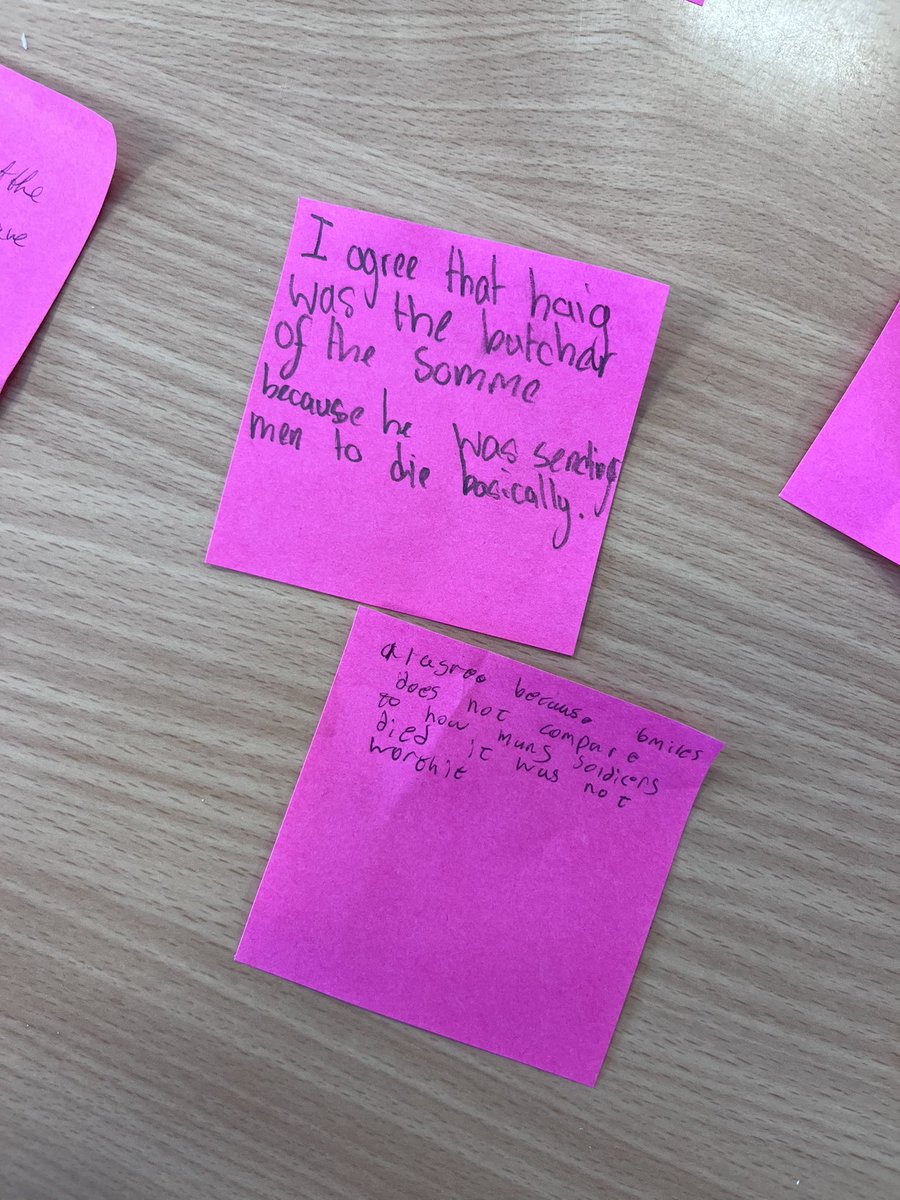 t the
I agree that haig
was the butchar
of the somme
because he was sending
men to die basically.
I agree because 6miles
does not compare
to how many soldiers
died it was not
worth it